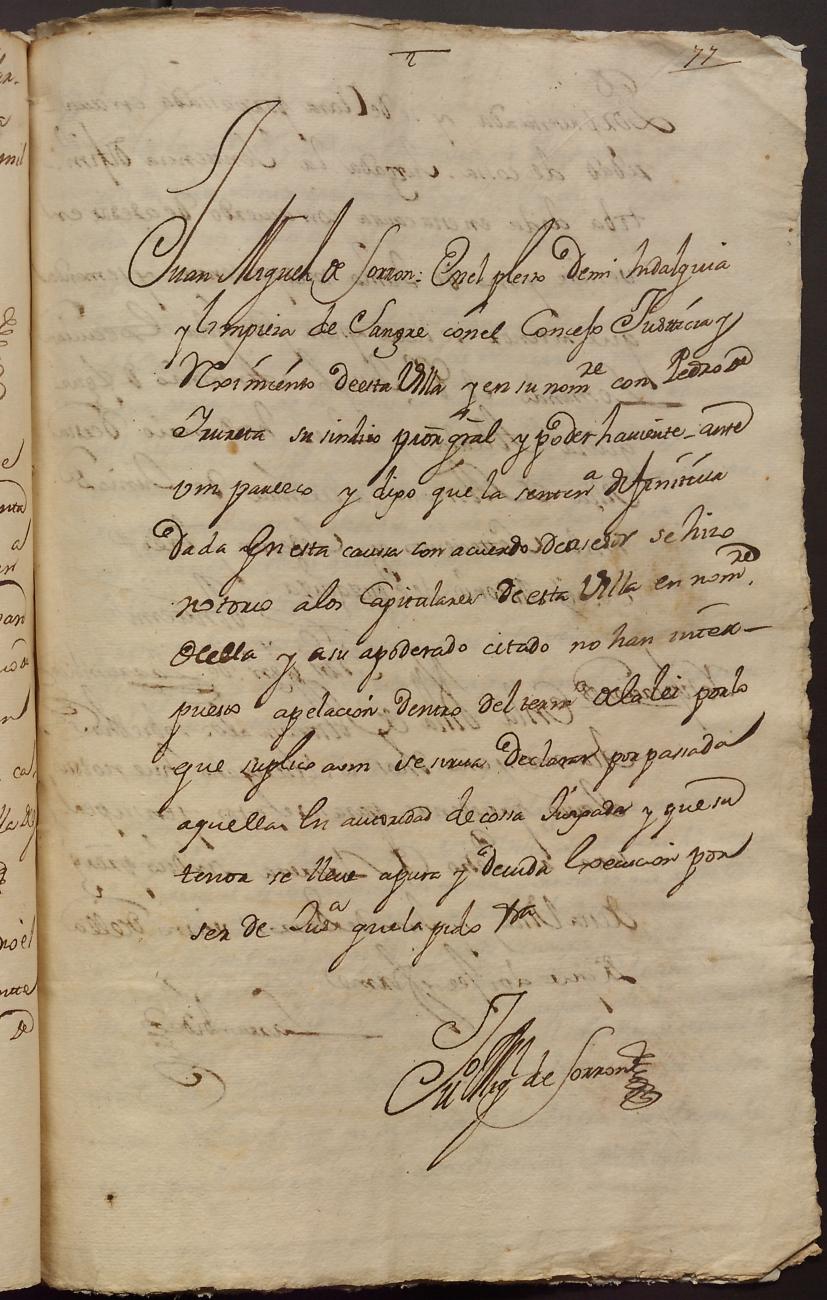 77
Juan Miguel de Sorron: En el pleito demi hidalguia
y limpieza de Sangre con el Concejo Justicia y
Reximiento deesta Villa y en su nomre con Pedro de
Irureta su sindico pror gral y poder haviente ante
vm parezco y dixo que la sentena difinitiva
dada En esta caussa con acuerdo deasesor se hizo
notorio alos Capitulares de esta Villa en nomre
deella y asu apoderado citado no han inter-
puesto apelacion dentro del termo dela lei por lo
que suplico avm se sirva declarar por passada
aquella En autoridad de cossa Juzgada y que su
tenor se lleve apura y devida Execucion por
ser de Jusa que la pido &a
Ju Migl de Sorron